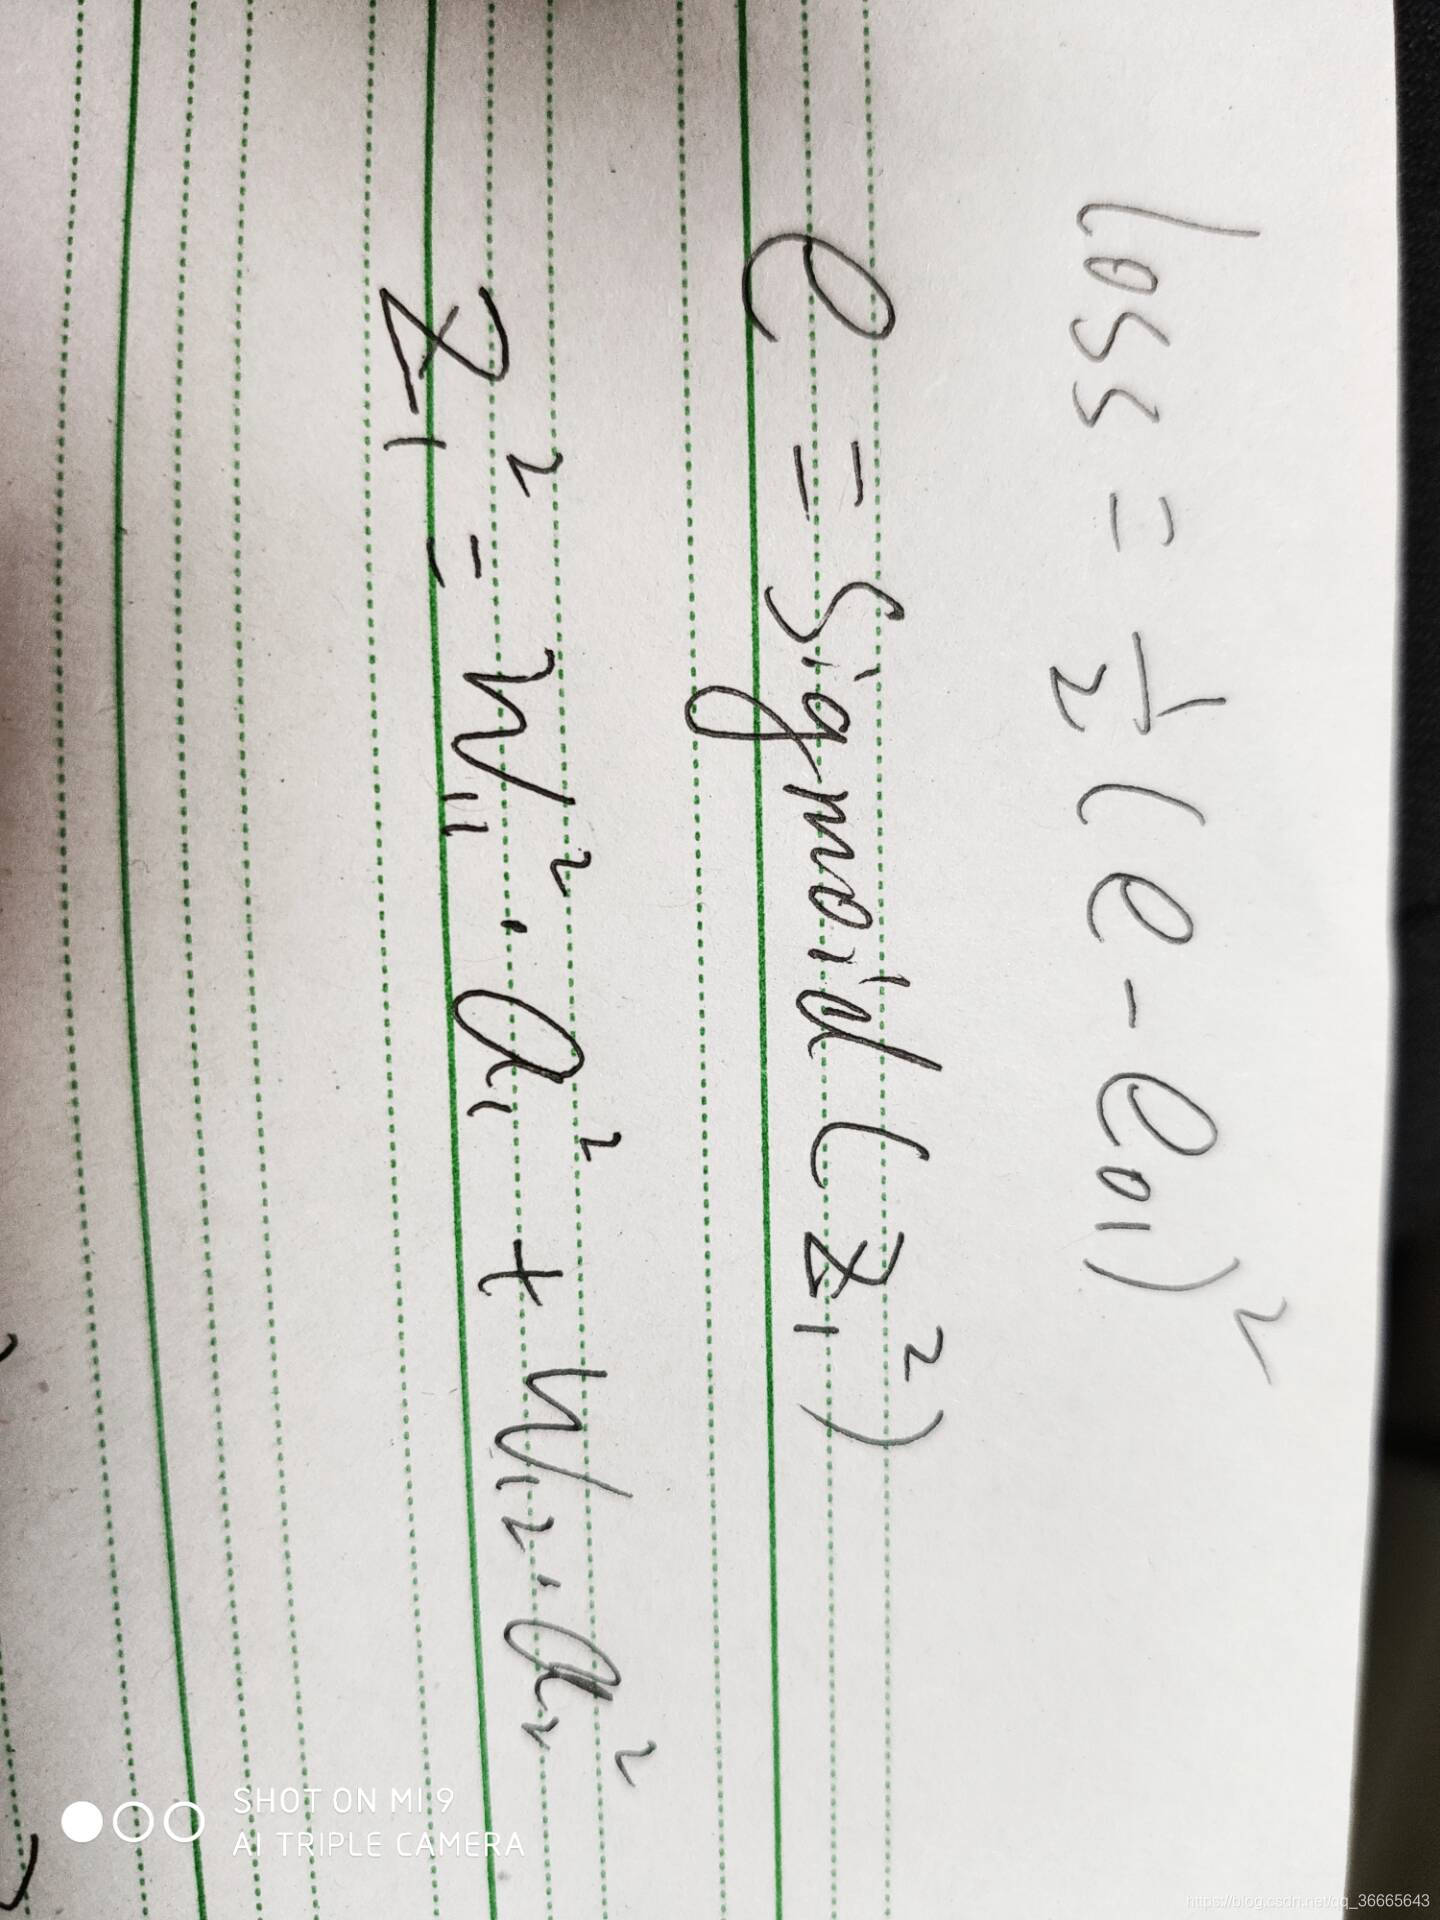 loss = 1/2 (e - e₀₁)²
e = sigmoid(z₁²)
z₁² = w₁₁² · a₁² + w₁₂ · a₂²
SHOT ON MI 9
AI TRIPLE CAMERA
https://blog.csdn.net/qq_36665643